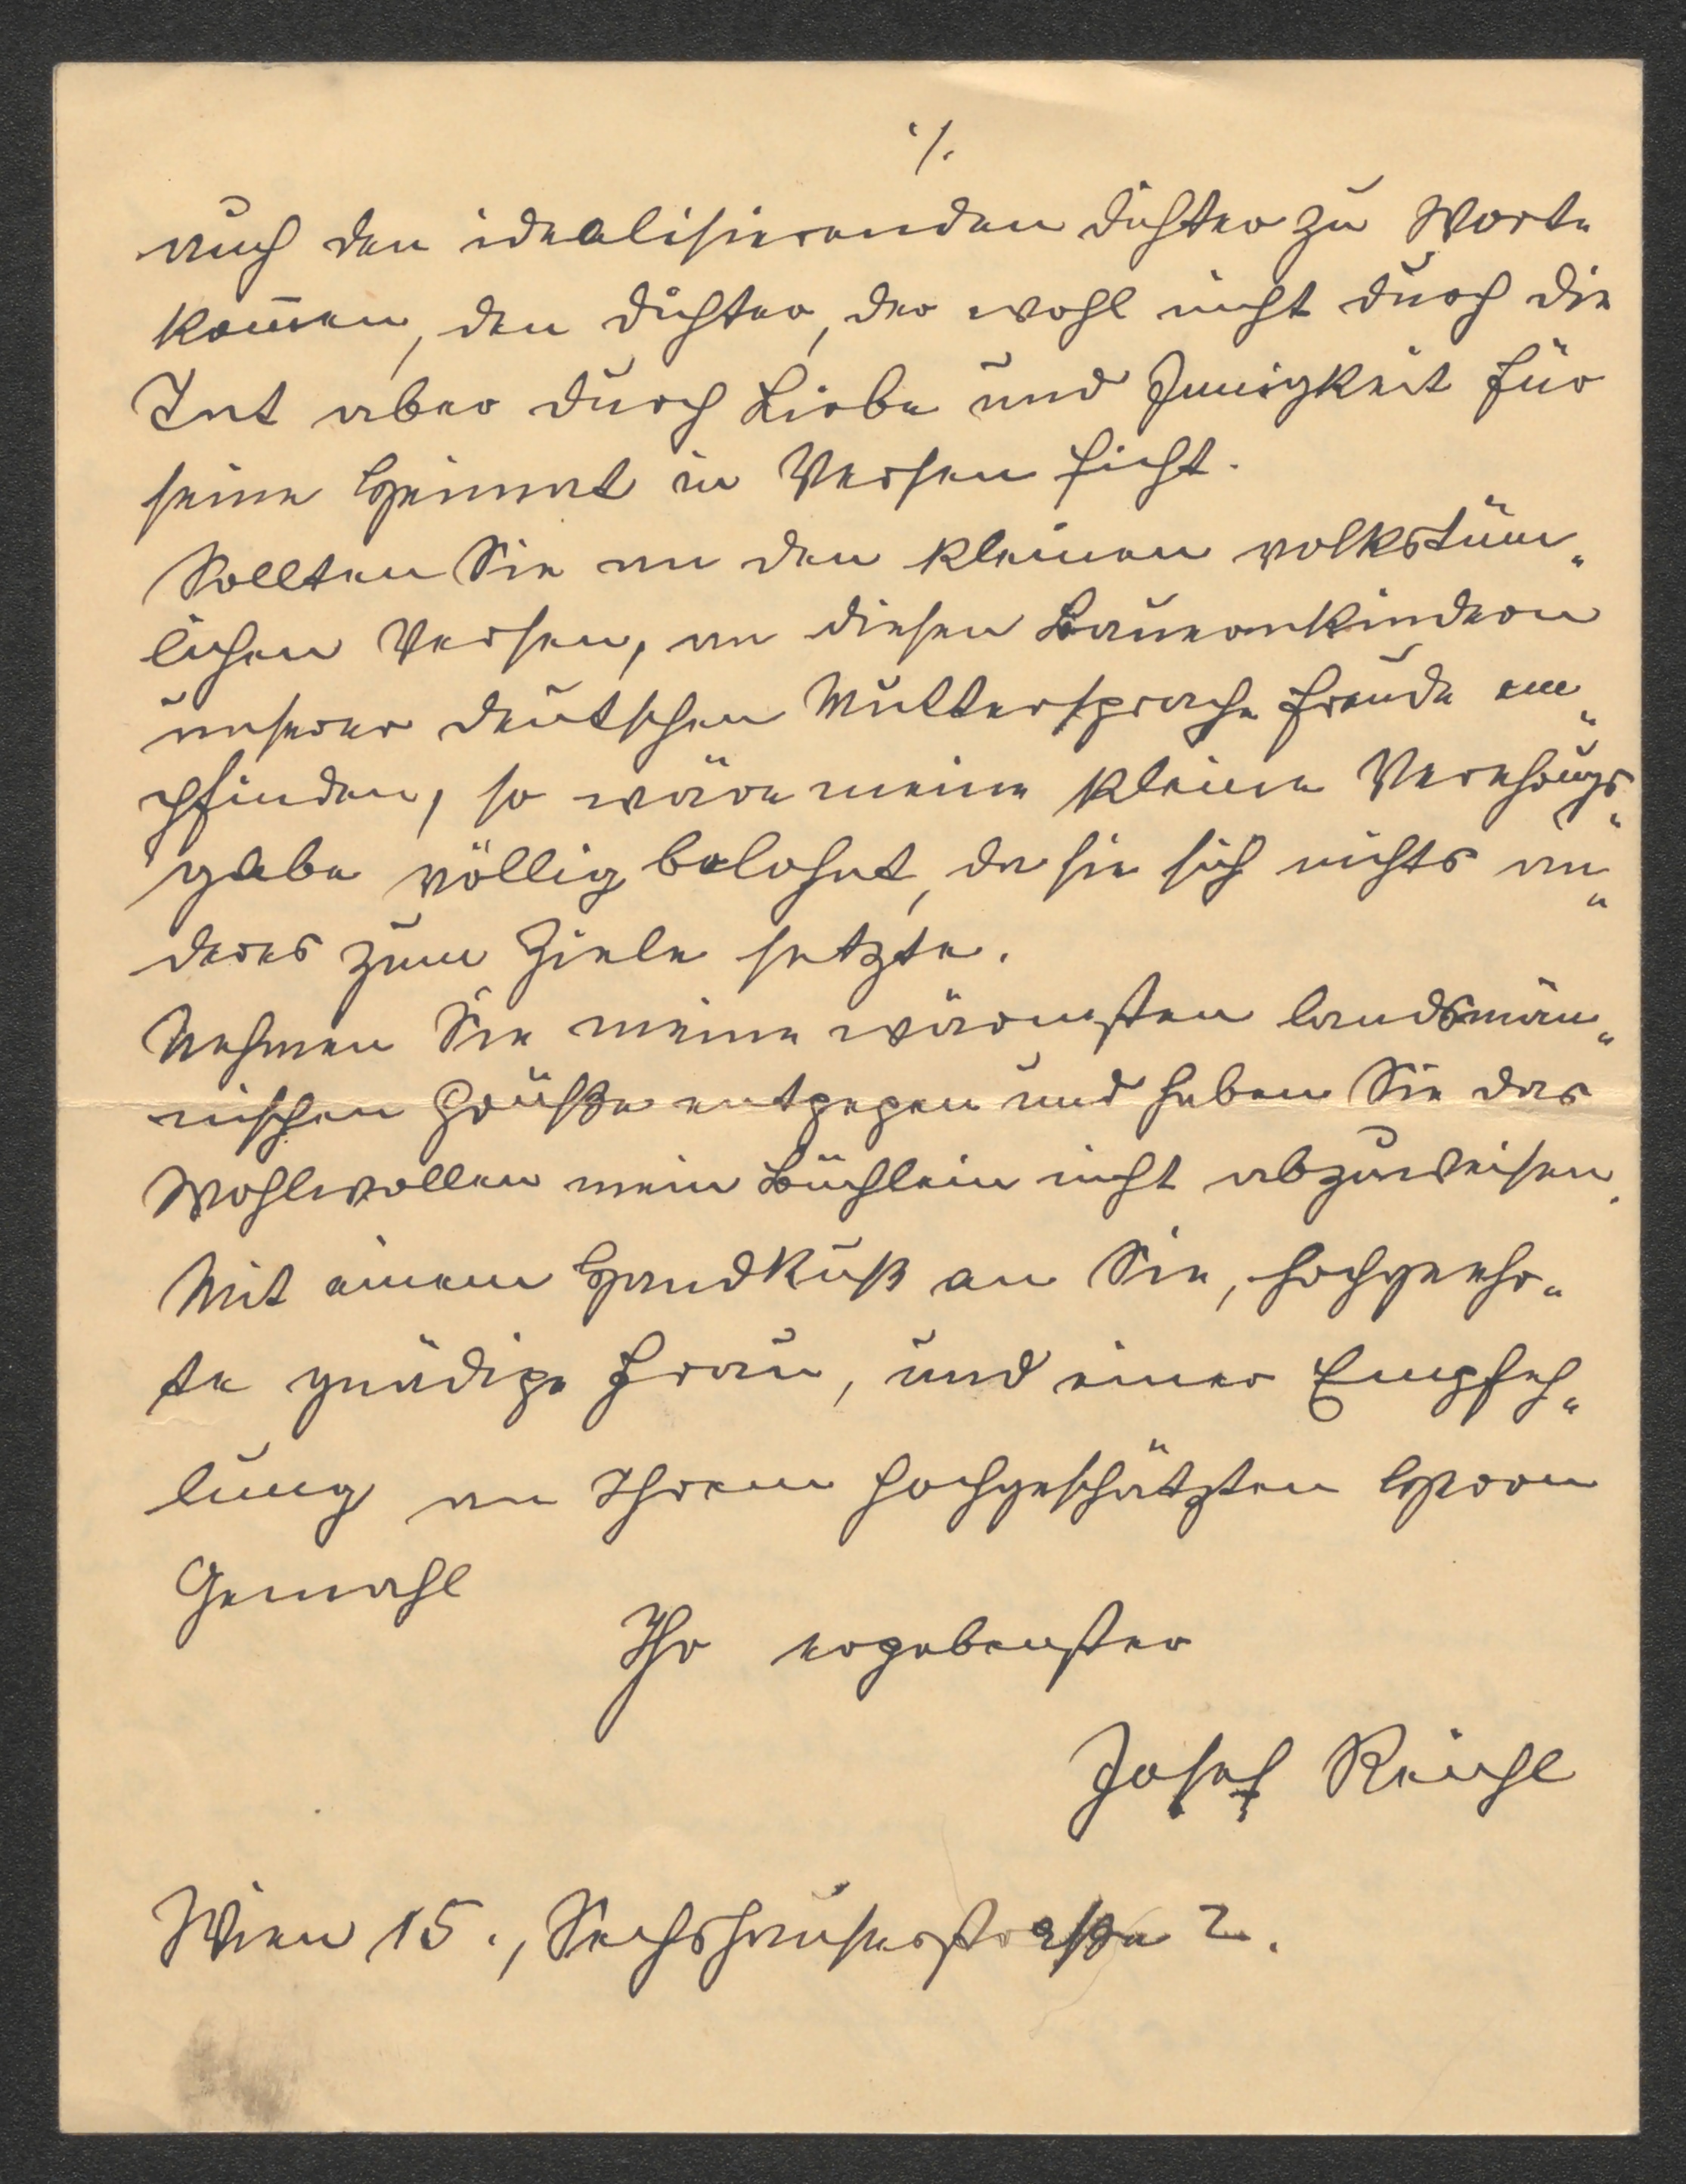 ./.
auch den idealisierenden Dichter zu Worte
kom̅en, den Dichter, der wohl nicht durch die
Tat aber durch Liebe und Innigkeit für
seine Heimat in Versen ficht.
Sollten Sie an den kleinen volkstüm„
lichen Versen, an diesen Bauernkindern
unserer deutschen Muttersprache Freude em„
pfinden, so wäre meine kleine Verehrungs„
gabe völlig belohnt, da sie sich nichts an„
deres zum Ziele setzte.
Nehmen Sie meine wärmsten landsmän„
nischen Grüße entgegen und haben Sie das
Wohlwollen mein Büchlein nicht abzuweisen.
Mit einem Handkuß an Sie, hochgeehr„
te gnädige Frau, und einer Empfeh„
lung an Ihrem hochgeschätzten Herrn
Gemahl
Ihr ergebenster
Josef Reichl
Wien 15., Sechshauserstraße 2.